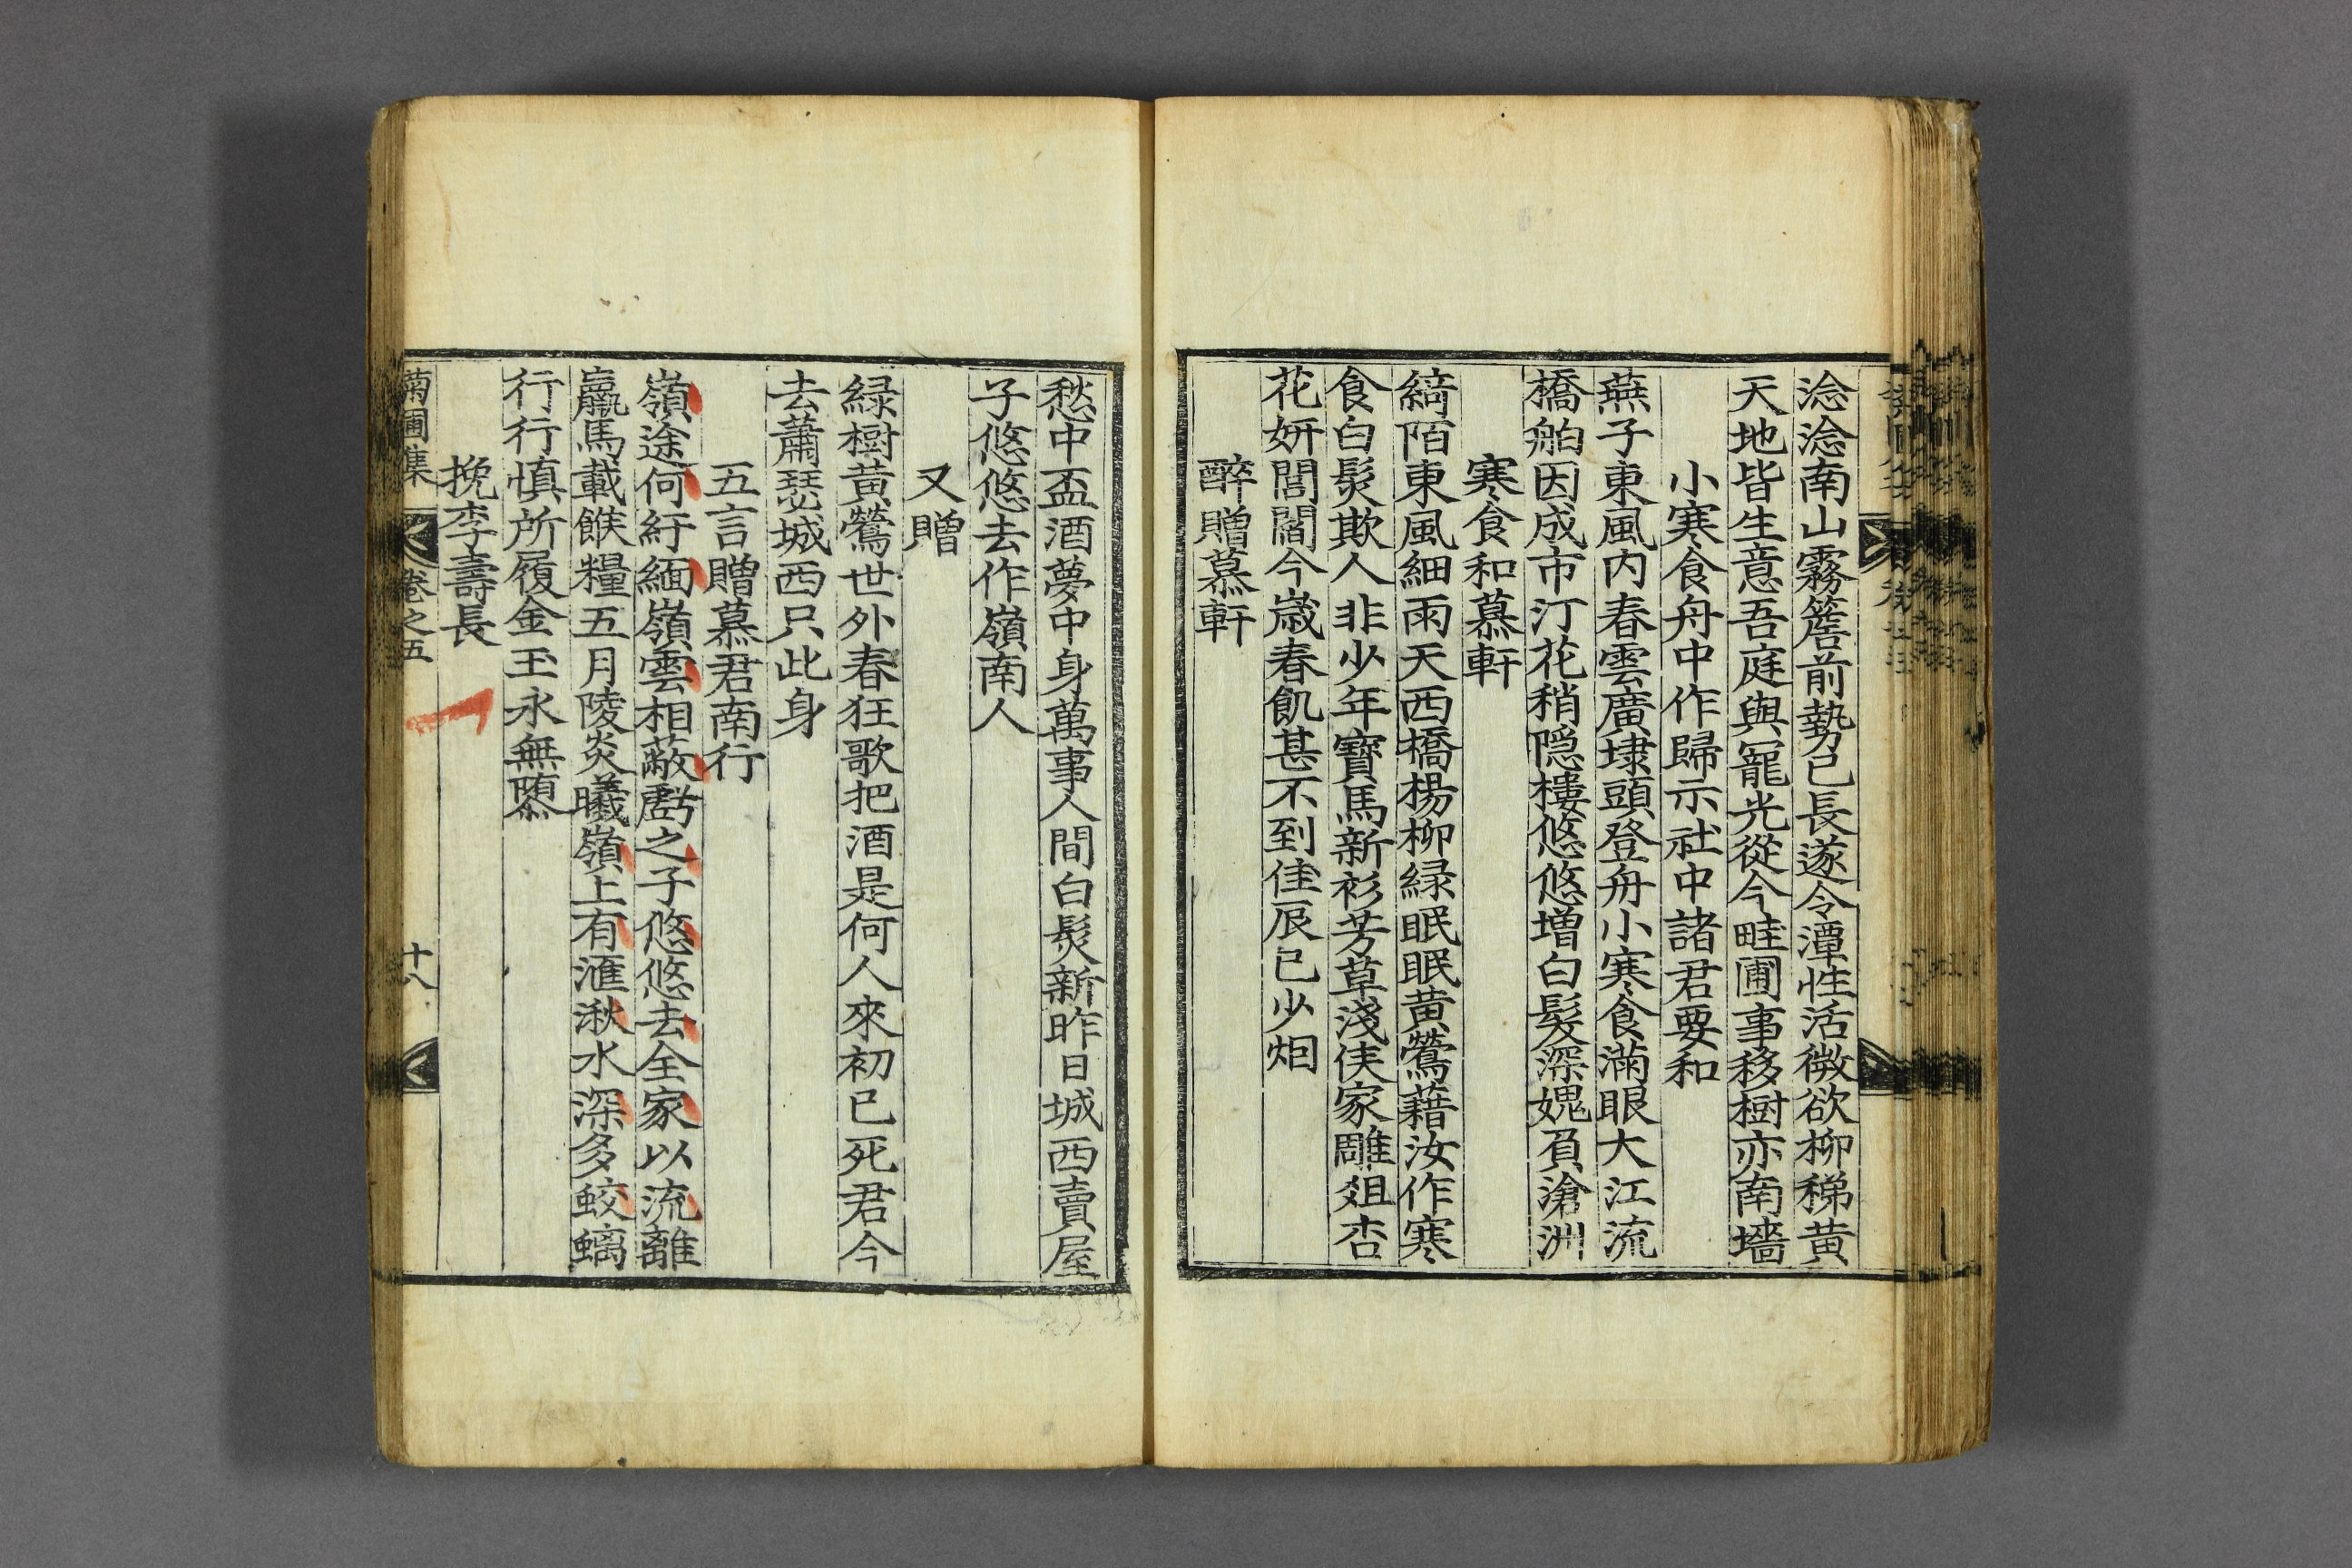 淰淰南山霧簷前勢已長遂令潭性活微欲柳稊黄
天地皆生意吾庭與寵光從今畦圃事移樹亦南墻
小寒食舟中作歸示社中諸君要和
燕子東風内春雲廣埭頭登舟小寒食滿眼大江流
橋舶因成市汀花稍隠樓悠悠增白髮深媿負滄洲
寒食和慕軒
綺陌東風細雨天西橋楊柳緑眠眠黄鶯藉汝作寒
食白髮欺人非少年寶馬新衫芳草淺侯家雕俎杏
花妍閭閻今歳春飢甚不到佳辰已少烟
醉贈慕軒
愁中盃酒夢中身萬事人間白髮新昨日城西賣屋
子悠悠去作嶺南人
又贈
緑樹黄鶯世外春狂歌把酒是何人來初已死君今
去蕭瑟城西只此身
五言贈慕君南行
嶺途何紆緬嶺雲相蔽虧之子悠悠去全家以流離
羸馬載餱糧五月陵炎曦嶺上有滙湫水深多蛟螭
行行慎所履金玉永無隳
挽李壽長
菊圃集 卷之五 十八